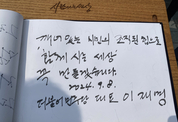 깨어 있는 시민의 조직된 힘으로
'함께 사는 세상'
꼭 만들겠습니다.
2024. 9. 8.
더불어민주당 대표 이재명